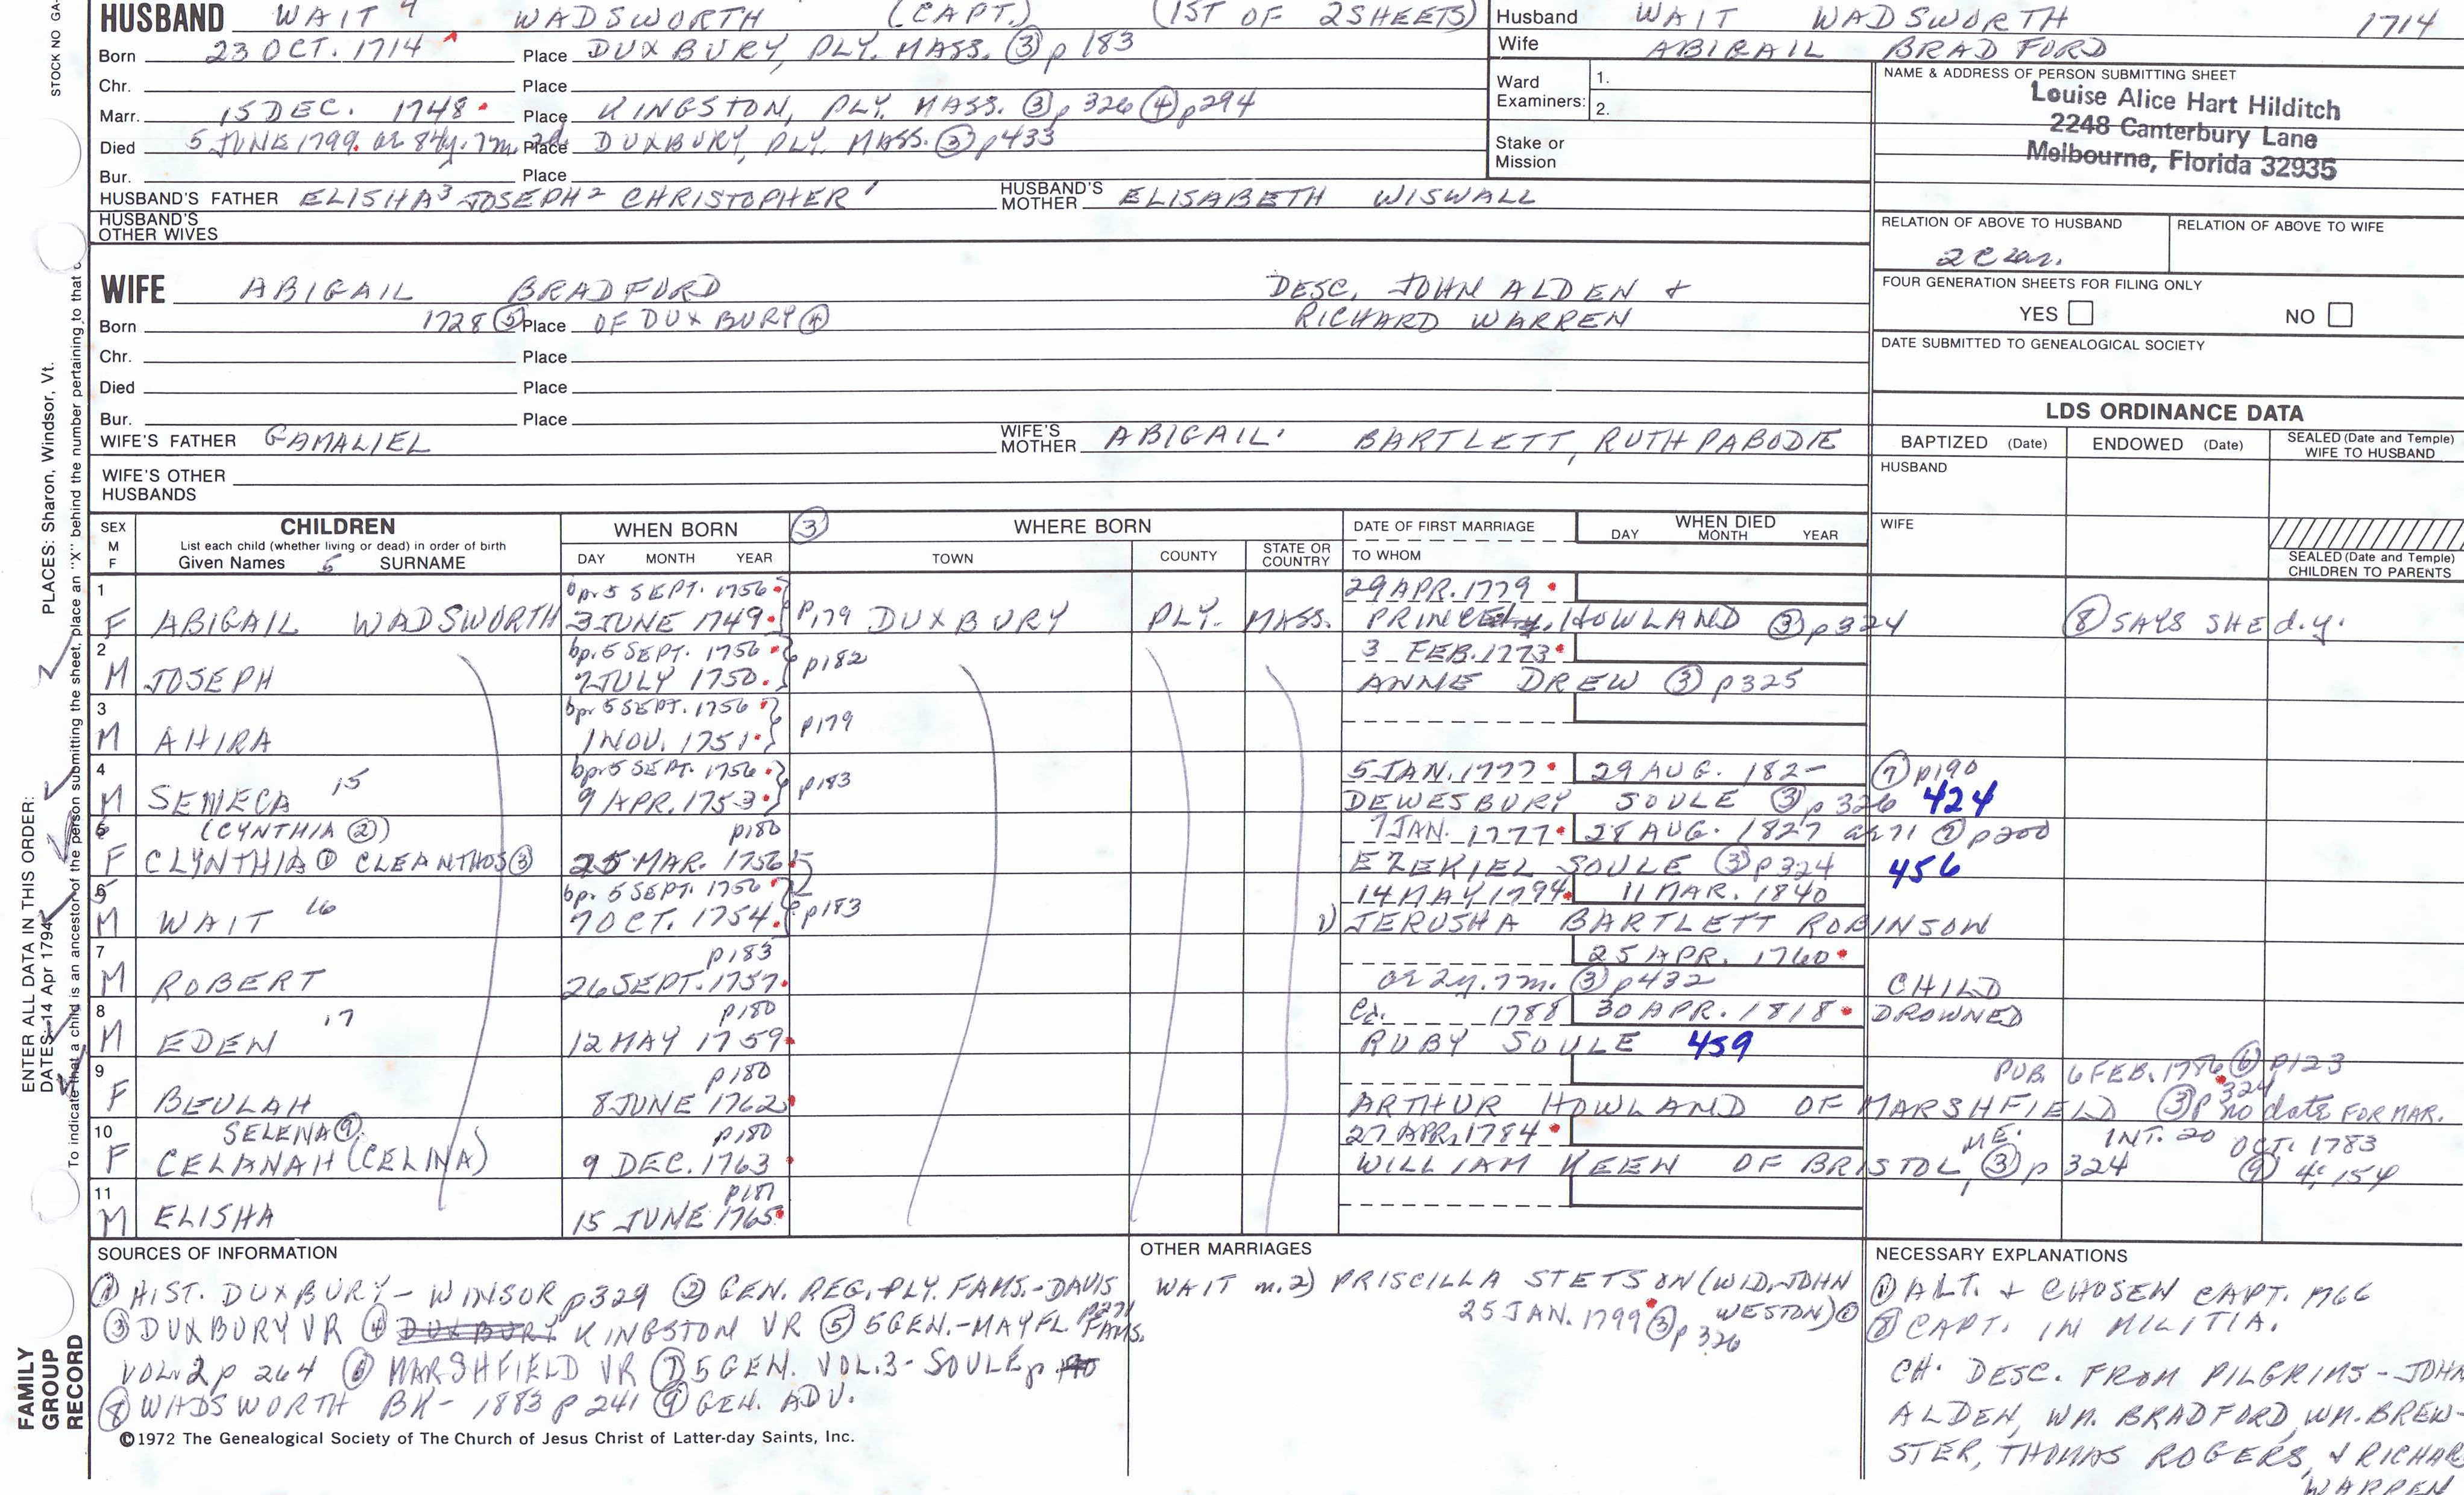 STOCK NO GA-
HUSBAND WAIT 4 WADSWORTH (CAPT.) (1ST OF 2 SHEETS)
Born 23 OCT. 1714 Place DUXBURY, PLY. MASS. ③ p 183
Chr. Place
Marr. 15 DEC. 1748 Place KINGSTON, PLY. MASS. ③ p 326 ④ p294
Died 5 JUNE 1799. ae 84y. 7m. 2d. Place DUXBURY, PLY. MASS. ③ p433
Bur. Place
HUSBAND'S FATHER ELISHA3 JOSEPH2 CHRISTOPHER1 HUSBAND'S MOTHER ELISABETH WISWALL
HUSBAND'S OTHER WIVES
Husband WAIT WADSWORTH 1714
Wife ABIGAIL BRADFORD
Ward Examiners: 1.
2.
Stake or Mission
NAME & ADDRESS OF PERSON SUBMITTING SHEET
Louise Alice Hart Hilditch
2248 Canterbury Lane
Melbourne, Florida 32935
RELATION OF ABOVE TO HUSBAND RELATION OF ABOVE TO WIFE
FOUR GENERATION SHEETS FOR FILING ONLY
YES NO
DATE SUBMITTED TO GENEALOGICAL SOCIETY
WIFE ABIGAIL BRADFORD DESC. JOHN ALDEN +
RICHARD WARREN
Born 1728 ⑤ Place OF DUXBURY ④
Chr. Place
Died Place
Bur. Place
WIFE'S FATHER GAMALIEL WIFE'S MOTHER ABIGAIL BARTLETT, RUTH PABODIE
WIFE'S OTHER HUSBANDS
LDS ORDINANCE DATA
BAPTIZED (Date) ENDOWED (Date) SEALED (Date and Temple) WIFE TO HUSBAND
HUSBAND
WIFE
SEALED (Date and Temple) CHILDREN TO PARENTS
SEX M F CHILDREN
List each child (whether living or dead) in order of birth
Given Names 5 SURNAME
WHEN BORN DAY MONTH YEAR
③ WHERE BORN TOWN COUNTY STATE OR COUNTRY
DATE OF FIRST MARRIAGE TO WHOM
WHEN DIED DAY MONTH YEAR
1 bp. 5 SEPT. 1756 29 APR. 1779
F ABIGAIL WADSWORTH 3 JUNE 1749 p179 DUXBURY PLY. MASS. PRINCE HOWLAND ③ p324 ⑧ SAYS SHE d.y.
2 bp. 5 SEPT. 1756 3 FEB. 1773
M JOSEPH 7 JULY 1750 p182 ANNE DREW ③ p325
3 bp 5 SEPT. 1756
M AHIRA 1 NOV. 1751 p179
4 15 bp 5 SEPT. 1756 5 JAN. 1777 29 AUG. 182- ⑦ p190
M SENECA 9 APR. 1753 p183 DEWESBURY SOULE ③ p 326 424
6 (CYNTHIA ②) p180 7 JAN. 1777 28 AUG. 1827 ae 71 ⑦ p200
F CLYNTHIA ① CLEANTHOS ③ 25 MAR. 1756 EZEKIEL SOULE ③ p324 456
5 bp. 5 SEPT. 1756 14 MAY 1794 11 MAR. 1840
M WAIT 16 7 OCT. 1754 p183 1) JERUSHA BARTLETT ROBINSON
7 p183 25 APR. 1760
M ROBERT 26 SEPT. 1757 ae 2y. 7m. ③ p432 CHILD
8 17 p180 Ca. 1788 30 APR. 1818 DROWNED
M EDEN 12 MAY 1759 RUBY SOULE 459
9 p180 PUB. 6 FEB. 1786 ⑥ p123
F BEULAH 8 JUNE 1762 ARTHUR HOWLAND OF MARSHFIELD ③ p 324 no date FOR MAR.
10 SELENA ⑨ p180 27 APR. 1784 ME. INT. 20 OCT. 1783
F CELANAH (CELINA) 9 DEC. 1763 WILLIAM KEEN OF BRISTOL, ③ p 324 ⑨ 4:154
11 p181
M ELISHA 15 JUNE 1765
SOURCES OF INFORMATION
① HIST. DUXBURY - WINSOR p329 ② GEN. REG. PLY. FAMS. - DAVIS p271
③ DUXBURY VR ④ DUXBURY KINGSTON VR ⑤ 5GEN. - MAYFL. FAMS.
VOL. 2 p 264 ⑥ MARSHFIELD VR ⑦ 5 GEN. VOL. 3 - SOULE p
⑧ WADSWORTH BK - 1883 p 241 ⑨ GEN. ADV.
©1972 The Genealogical Society of The Church of Jesus Christ of Latter-day Saints, Inc.
OTHER MARRIAGES
WAIT m. 2) PRISCILLA STETSON (WID. JOHN
25 JAN. 1799 ③ p 326 WESTON) ①
NECESSARY EXPLANATIONS
① ALT. + CHOSEN CAPT. 1766
⑧ CAPT. IN MILITIA.
CH. DESC. FROM PILGRIMS - JOHN
ALDEN, WM. BRADFORD, WM. BREW-
STER, THOMAS ROGERS, + RICHARD
WARREN
PLACES: Sharon, Windsor, Vt.
ENTER ALL DATA IN THIS ORDER:
DATES: 14 Apr 1794
To indicate that a child is an ancestor of the person submitting the sheet, place an "X" behind the number pertaining to that c
FAMILY GROUP RECORD